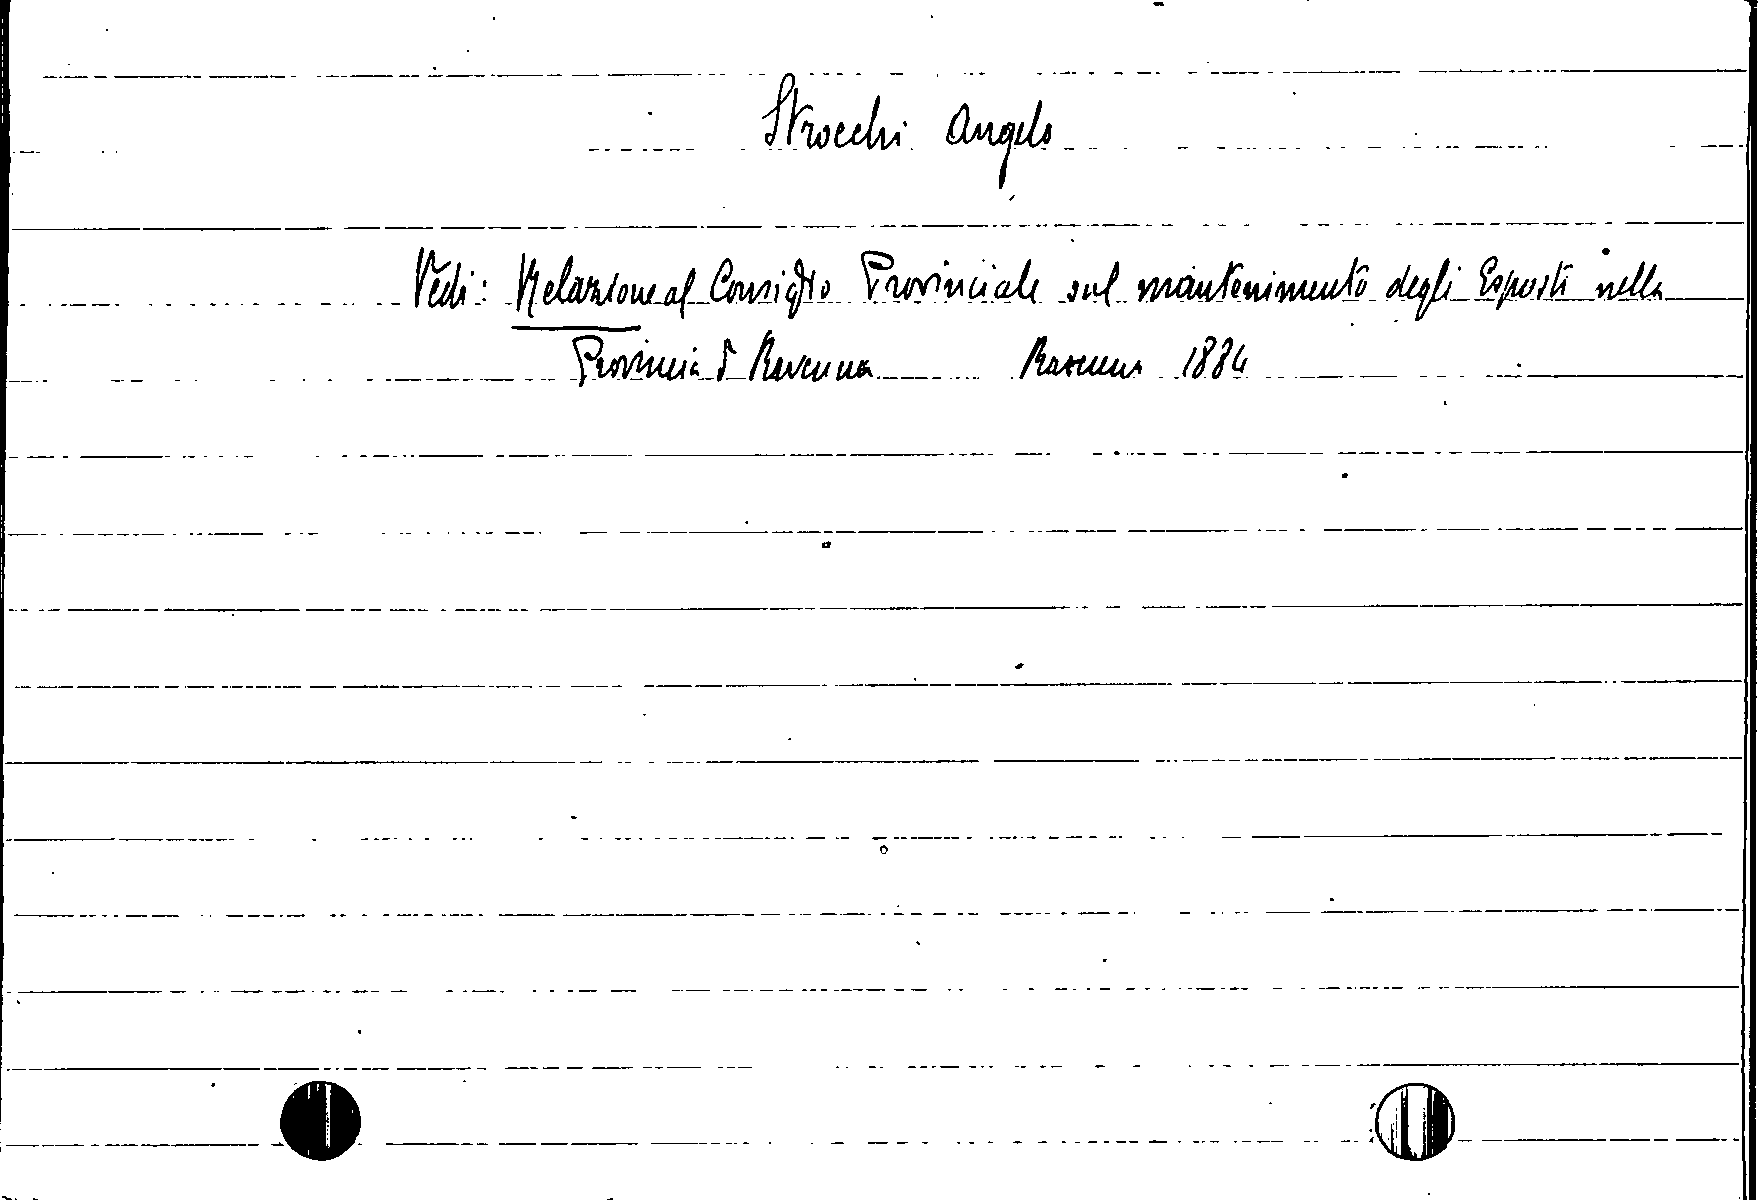 Strocchi Angelo
Vedi: Relazione al Consiglio Provinciale sul mantenimento degli Esposti nella
Provincia di Ravenna Ravenna 1884